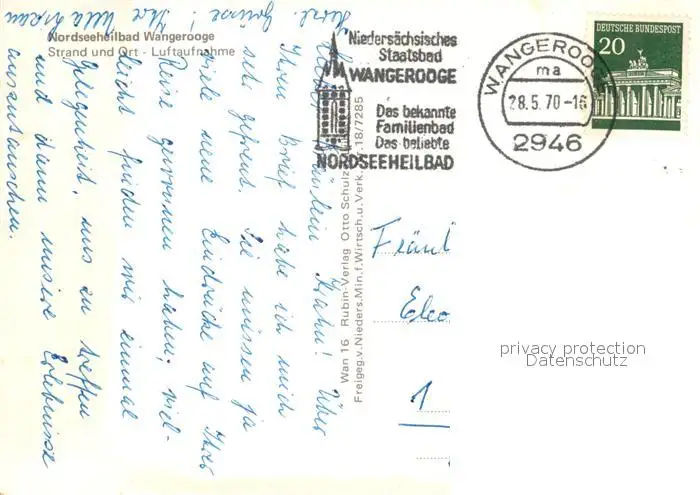 Nordseeheilbad Wangerooge
Strand und Ort - Luftaufnahme
Niedersächsisches
Staatsbad
WANGEROOGE
Das bekannte
Familienbad
Das beliebte
NORDSEEHEILBAD
WANGEROO
ma
28.5.70-16
2946
DEUTSCHE BUNDESPOST
20
Fräulein Krahn! Über
Ihren Brief habe ich mich
sehr gefreut. Sie müssen ja
viele neue Eindrücke auf Ihrer
Reise gewonnen haben, viel-
leicht finden wir einmal
Gelegenheit, uns zu treffen
und dann unsere Erlebnisse
auszutauschen.
Herzl. Grüsse! Ihre Ulla
Wan 16 Rubin-Verlag Otto Schulz
Freigeg.v.Nieders.Min.f.Wirtsch.u.Verk. 18/7285
Fräul
1
privacy protection
Datenschutz